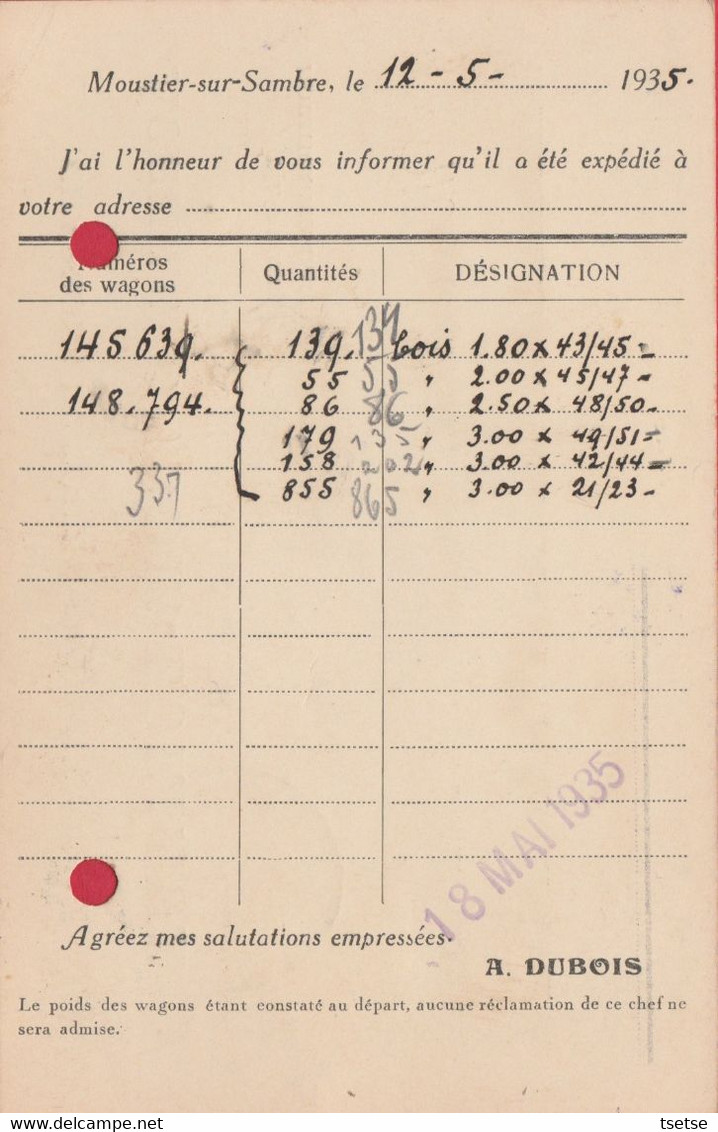 Moustier-sur-Sambre, le 12 - 5 - 1935.
J'ai l'honneur de vous informer qu'il a été expédié à
votre adresse
Numéros des wagons Quantités DÉSIGNATION
145639. 139. 134 bois 1.80 x 43/45 -
55 55 " 2.00 x 45/47 -
148.794. 86 86 " 2.50 x 48/50 -
179 135 " 3.00 x 49/51 =
158 202 " 3.00 x 42/44 =
337 855 865 " 3.00 x 21/23 -
18 MAI 1935
Agréez mes salutations empressées.
A. DUBOIS
Le poids des wagons étant constaté au départ, aucune réclamation de ce chef ne
sera admise.
delcampe.net
tsetse